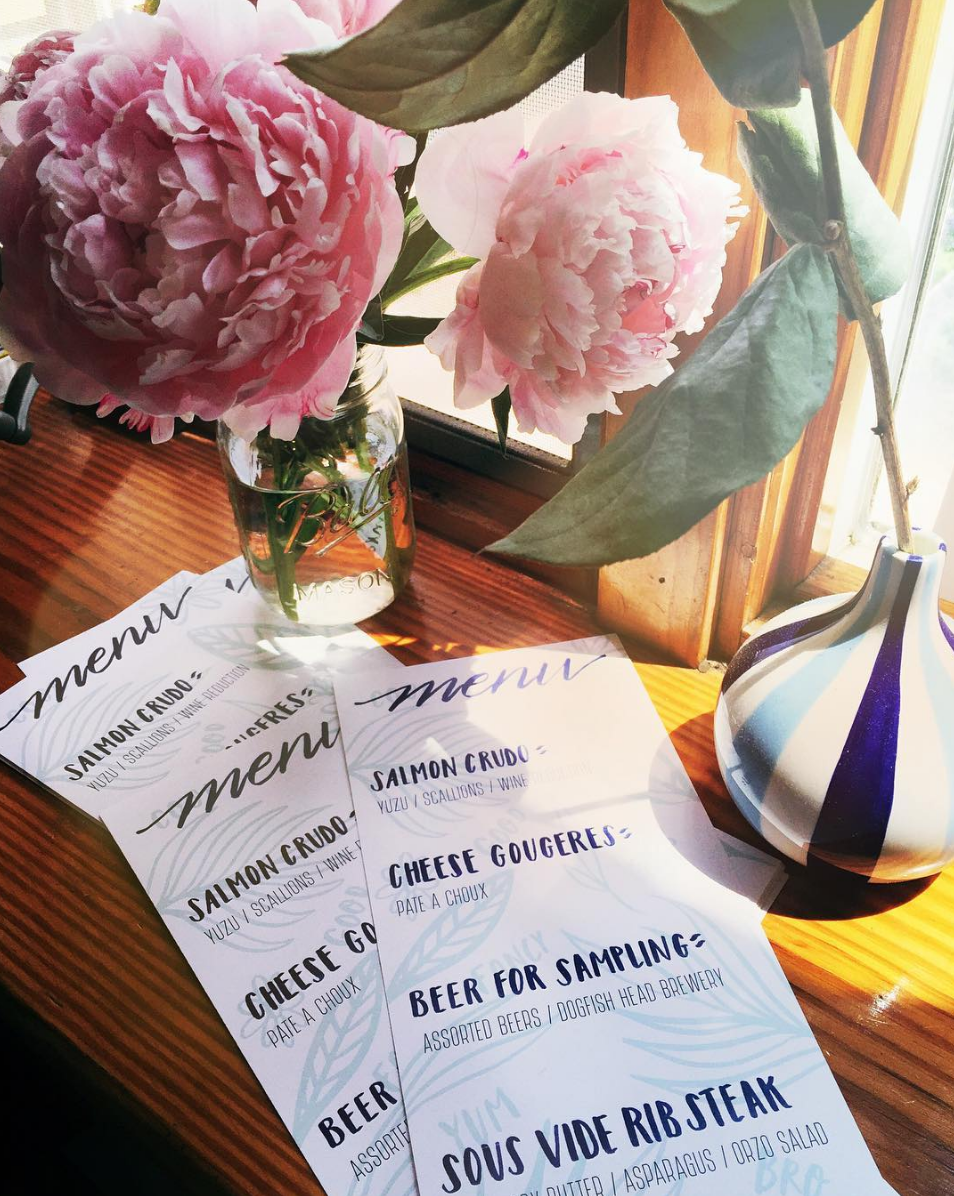 Ball
MASON
menu
SALMON CRUDO
YUZU / SCALLIONS / WINE REDUCTION
GOUGERES
menu
SALMON CRUDO
YUZU / SCALLIONS / WINE
CHEESE GO
PATE A CHOUX
BEER
ASSORTE
menu
SALMON CRUDO
YUZU / SCALLIONS / WINE REDUCTION
CHEESE GOUGERES
PATE A CHOUX
BEER FOR SAMPLING
ASSORTED BEERS / DOGFISH HEAD BREWERY
YUM
SOUS VIDE RIB STEAK
BUTTER / ASPARAGUS / ORZO SALAD
BRO